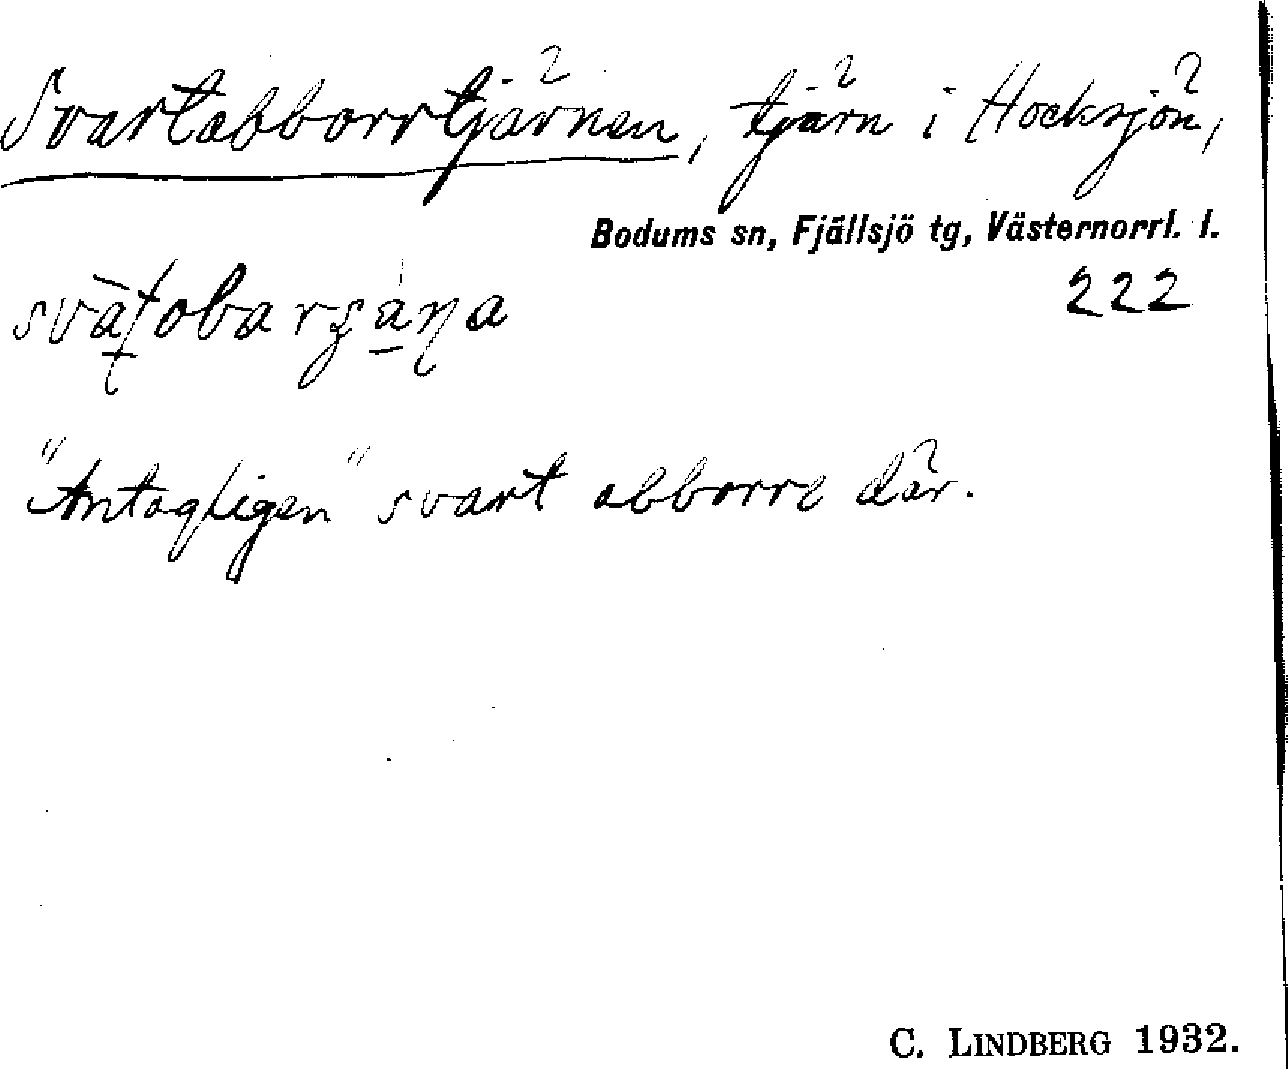 Svartabborrtjärnen, tjärn i Hocksjön,
Bodums sn, Fjällsjö tg, Västernorrl. l.
222
"Antagligen" svart abborre där.
C. LINDBERG 1932.